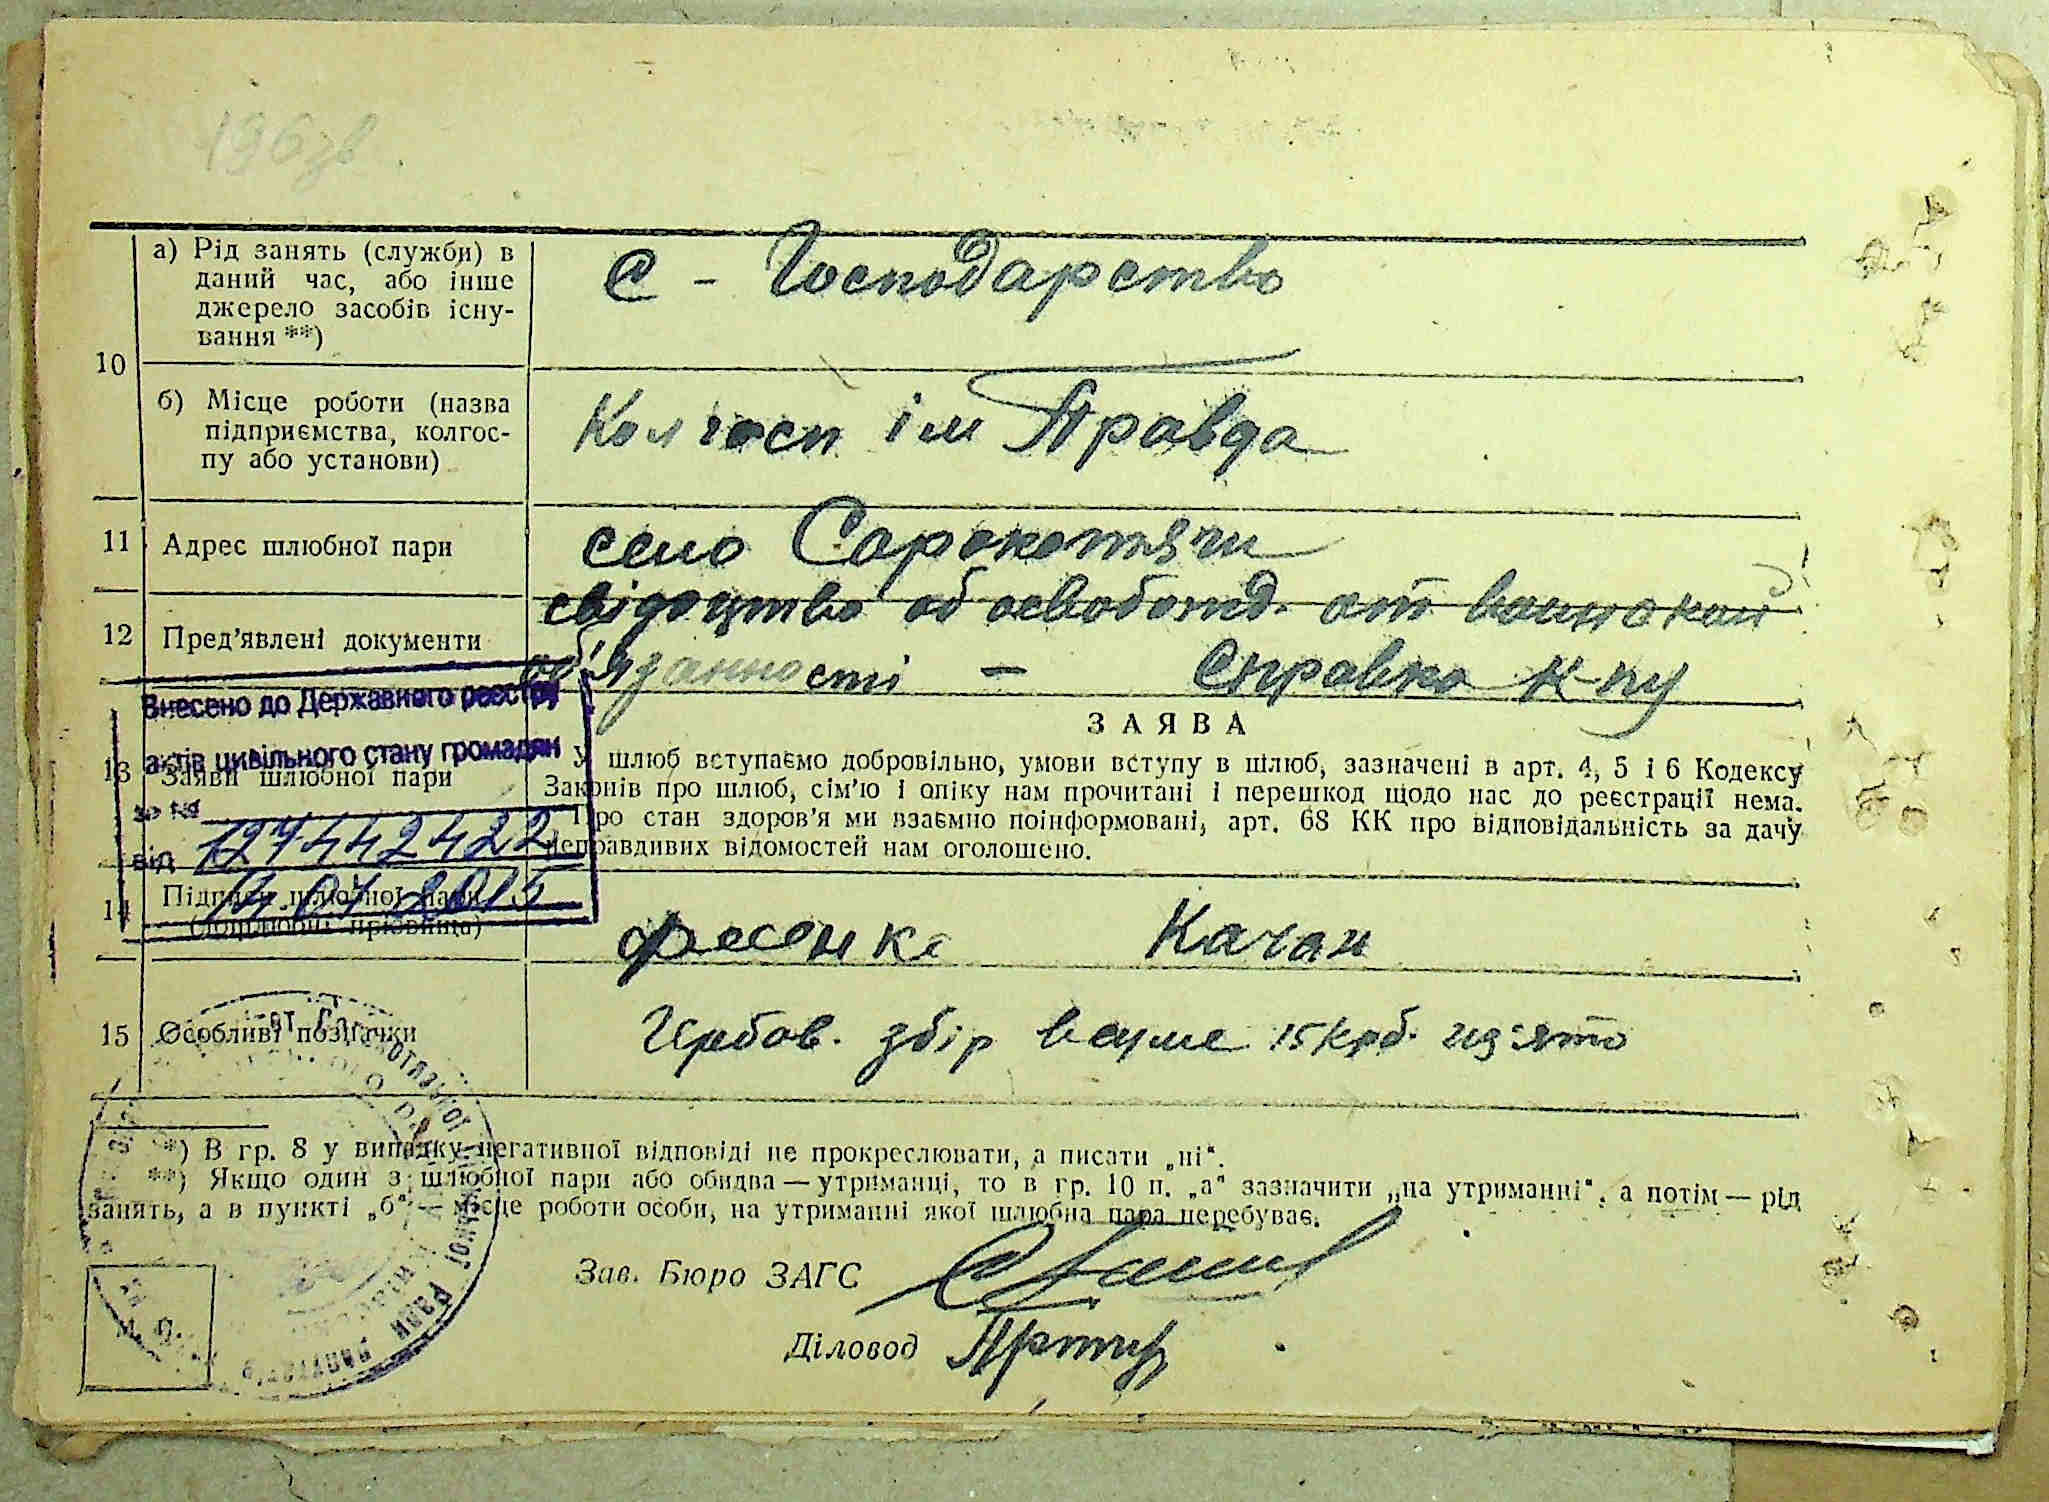 196зв
10
а) Рід занять (служби) в
даний час, або інше
джерело засобів існу-
вання **)
С - Господарство
б) Місце роботи (назва
підприємства, колгос-
пу або установи)
Колгосп ім Правда
11 Адрес шлюбної пари
село Сорокотяги
12 Пред’явлені документи
свідоцтво об освобожд. от воинской
об'язанності - Справка К-пу
Внесено до Державного реєстру
актів цивільного стану громадян
за №
від 127442422
14.07 2015
13 Заяви шлюбної пари
ЗАЯВА
У шлюб вступаємо добровільно, умови вступу в шлюб, зазначені в арт. 4, 5 і 6 Кодексу
Законів про шлюб, сім’ю і опіку нам прочитані і перешкод щодо нас до реєстрації нема.
Про стан здоров’я ми взаємно поінформовані, арт. 68 КК про відповідальність за дачу
неправдивих відомостей нам оголошено.
14 Підписи шлюбної пари
(дошлюбні прізвища)
Фесенко Качан
15 Особливі позначки
Гербов. збір в суме 15 крб. из'ято
*) В гр. 8 у випадку негативної відповіді не прокреслювати, а писати „ні“.
**) Якщо один з шлюбної пари або обидва — утриманці, то в гр. 10 п. „а“ зазначити „на утриманні“, а потім — рід
занять, а в пункті „б“ місце роботи особи, на утриманні якої шлюбна пара перебуває.
Зав. Бюро ЗАГС
Діловод
М. П.